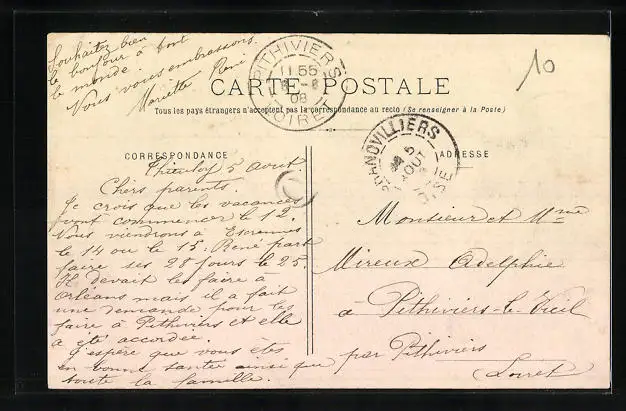 Souhaitez bien
le bonjour à tout
le monde.
Nous vous embrassons.
Mariette René
PITHIVIERS
11 55
6 - 8
08
LOIRET
10
CARTE POSTALE
Tous les pays étrangers n'acceptent pas la correspondance au recto (Se renseigner à la Poste)
GRANDVILLIERS
5
AOUT
OISE
CORRESPONDANCE
ADRESSE
Thieuloy 5 Aout.
Chers parents.
Je crois que les vacances
vont commencer le 12.
Nous viendrons à Escrennes
le 14 ou le 15. René part
faire ses 28 jours le 25.
Il devait les faire à
Orléans mais il a fait
une demande pour les
faire à Pithiviers et elle
a été accordée.
J'espère que vous êtes
en bonne santé ainsi que
toute la famille.
Monsieur et Mme
Mireux Adelphie
à Pithiviers-le-Vieil
par Pithiviers
Loiret